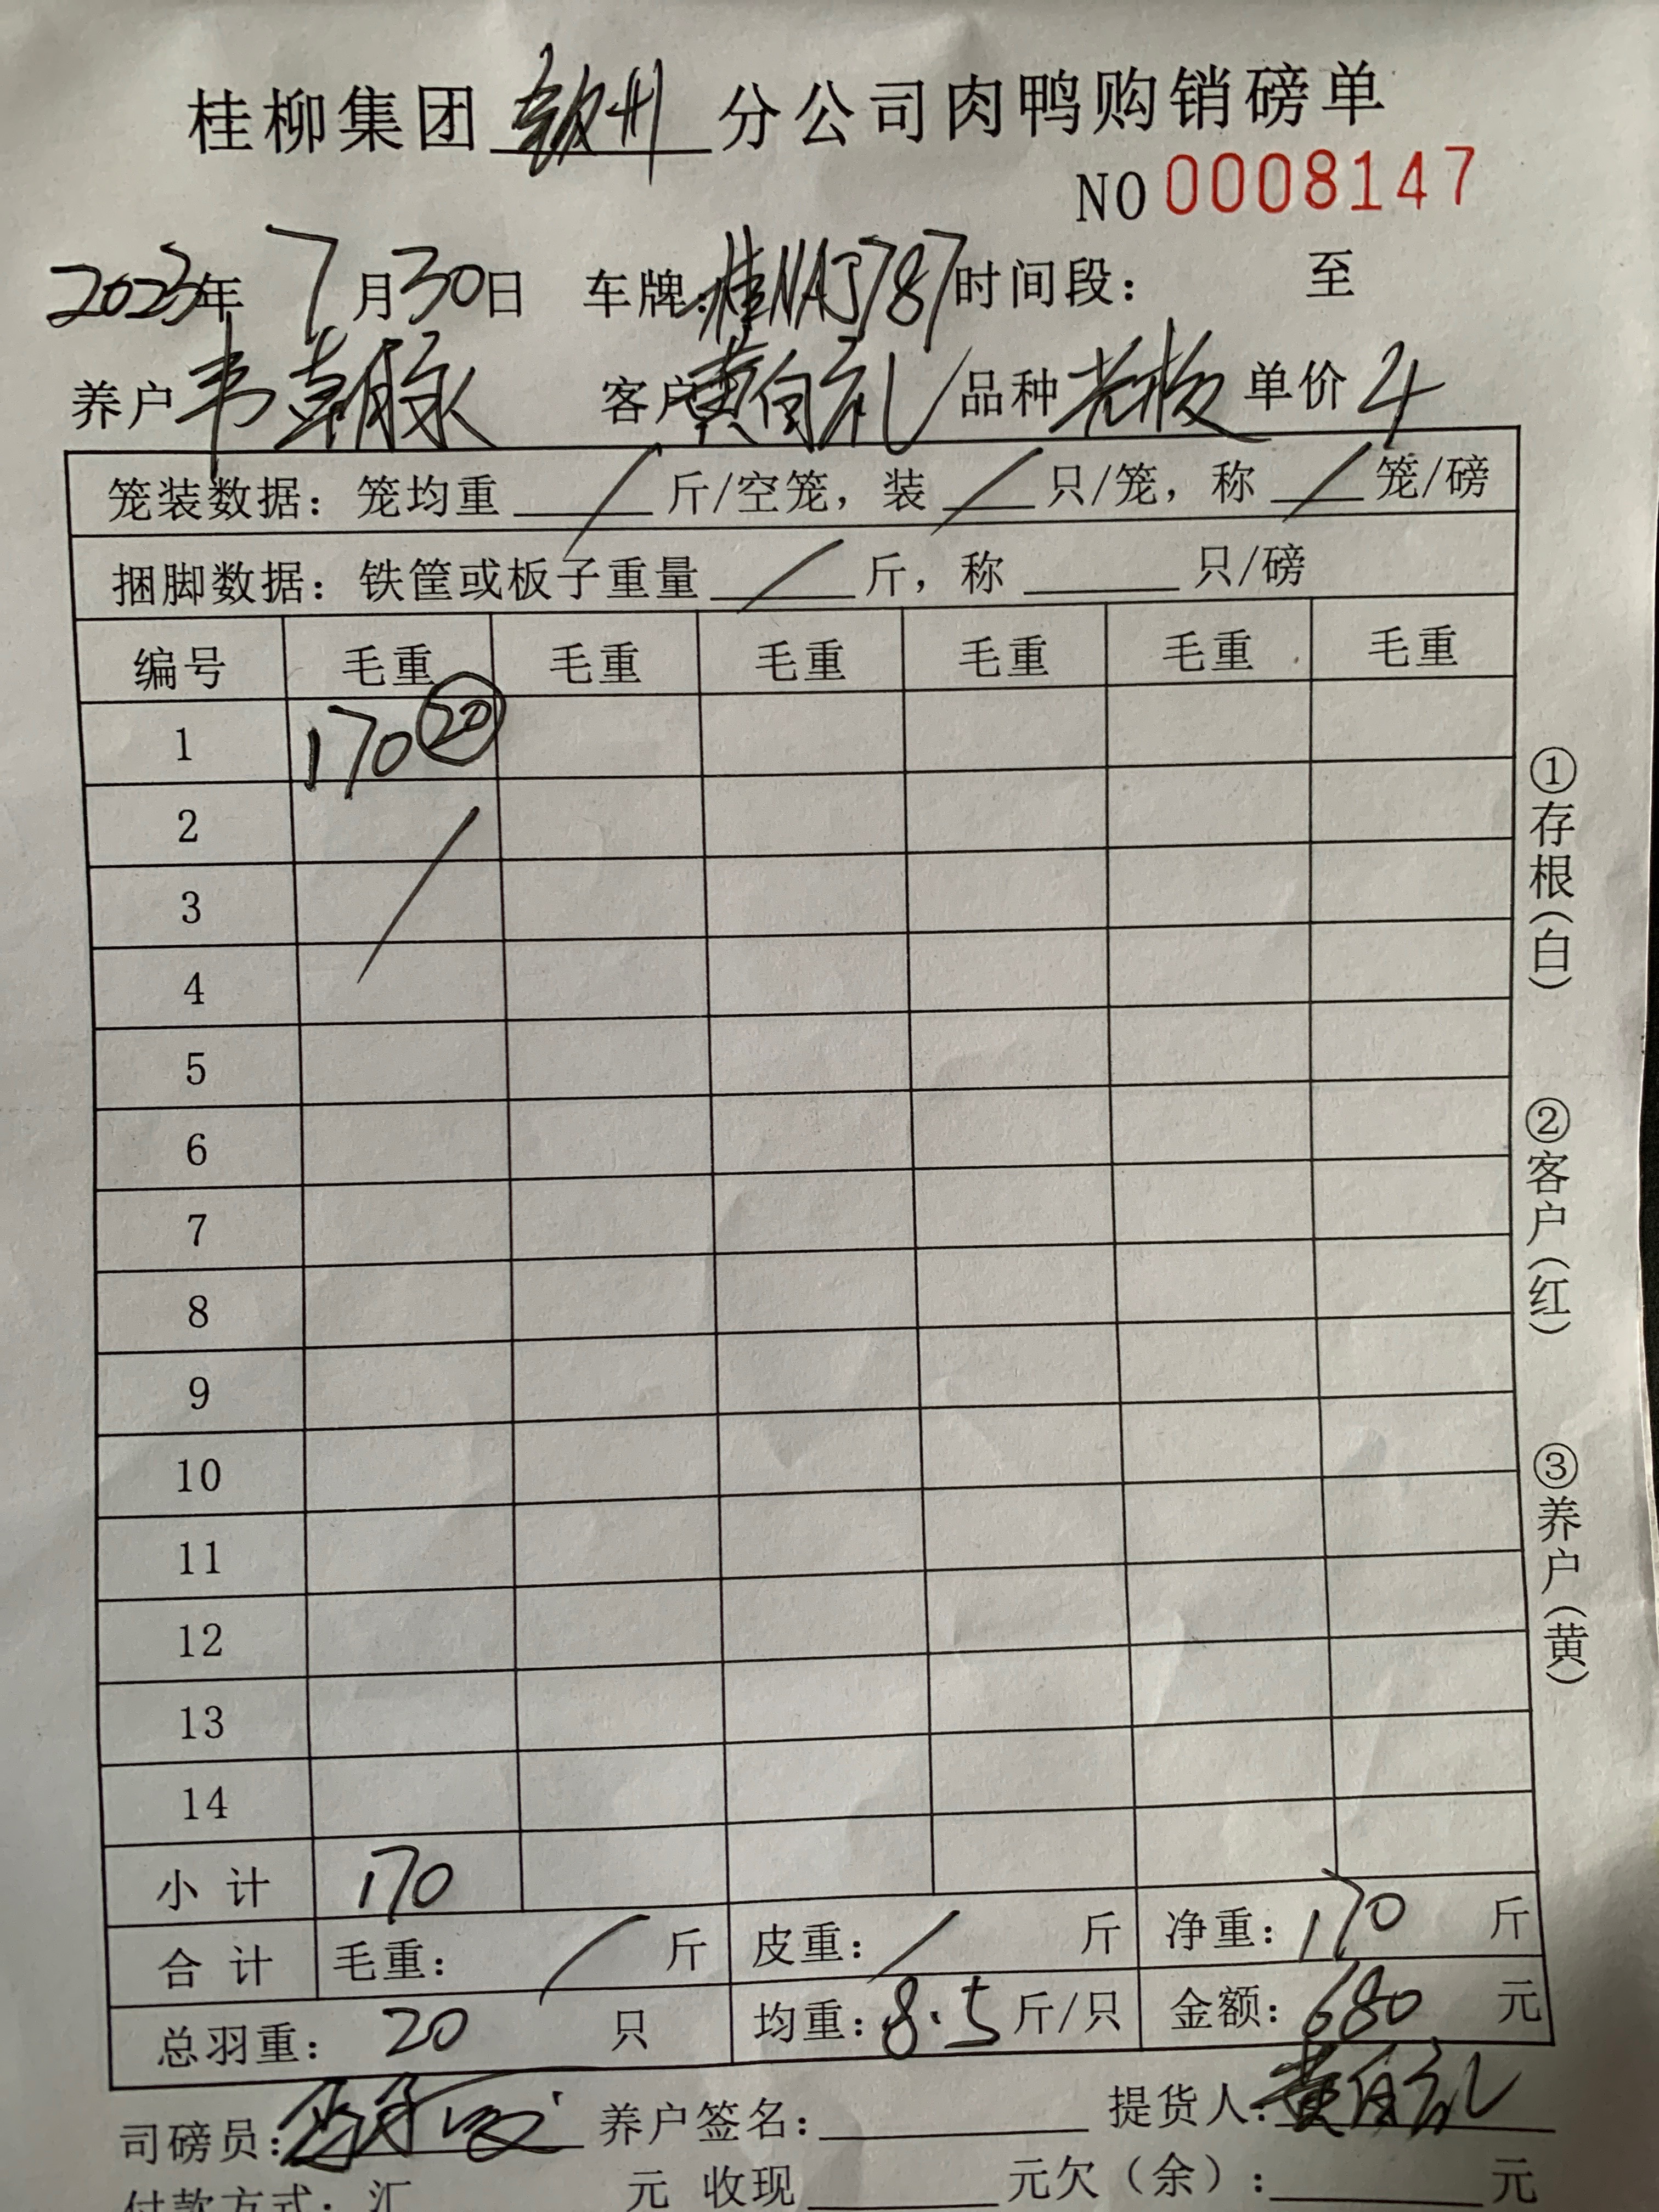 桂柳集团 钦州 分公司肉鸭购销磅单
NO 0008147
2023年 7月30日 车牌:桂NAJ787 时间段: 至
养户 韦朝脉 客户 黄自礼 品种 老板 单价 4
笼装数据: 笼均重 / 斤/空笼, 装 / 只/笼, 称 / 笼/磅
捆脚数据: 铁筐或板子重量 / 斤, 称 只/磅
编号 毛重 毛重 毛重 毛重 毛重 毛重
1 170 ⑳
2
3
4
5
6
7
8
9
10
11
12
13
14
小计 170
合计 毛重: / 斤 皮重: / 斤 净重: 170 斤
总羽重: 20 只 均重: 8.5 斤/只 金额: 680 元
司磅员: 养户签名: 提货人: 黄自礼
付款方式: 汇 元 收现 元欠(余): 元
①存根(白)
②客户(红)
③养户(黄)